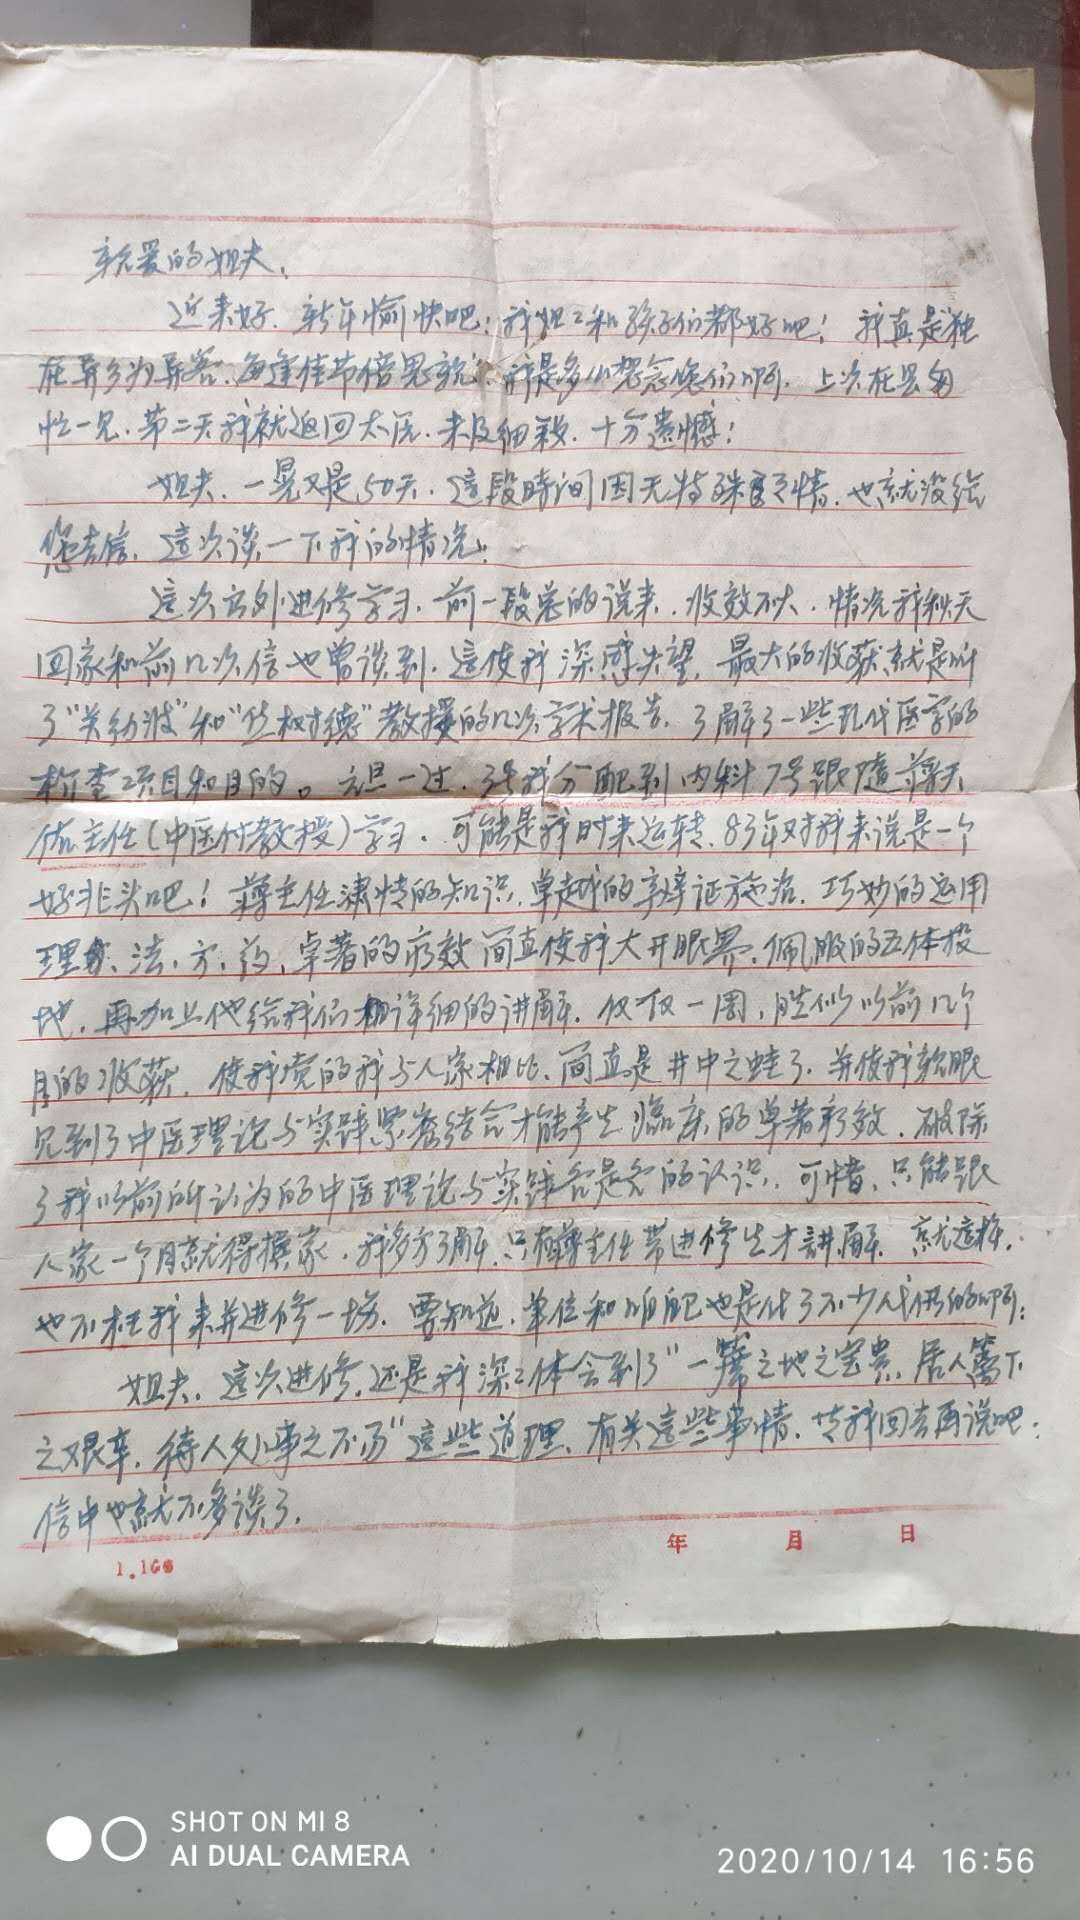 亲爱的姐夫、
近来好、新年愉快吧！我姐姐和孩子们都好吧！我真是"独
在异乡为异客、每逢佳节倍思亲"、我是多么想念您们啊、上次在县匆
忙一见、第二天我就返回太医、未及细叙、十分遗憾！
姐夫、一晃又是50天、这段時间因无特殊事情、也就没给
您去信、这次谈一下我的情况：
这次出外进修学习、前一段总的说来、收效不大、情况我秋天
回家和前几次信也曾谈到、这使我深感失望、最大的收获就是听
了"关幼波"和"丛树德"教授的几次学术报告、了解了一些现代医学的
检查项目和目的。元旦一过、3号我分配到内科7号跟随
佑主任(中医付教授)学习、可能是我时来运转、83年对我来说是一个
好兆头吧！主任的知识、卓越的辨证施治、巧妙的运用
理、法、方、药、卓著的疗效简直使我大开眼界、佩服的五体投
地、再加上他给我们详细的讲解、仅仅一周、胜似以前几个
月的收获、使我觉的我与人家相比、简直是井中之蛙了、并使我亲眼
见到了中医理论与实践紧密结合才能产生临床的卓著疗效、破除
了我以前所认为的中医理论与实践各是各的认识、可惜、只能跟
人家一个月就得换家、我多方了解、只有主任带进修生才讲解、就这样、
也不枉我来并进修一场、要知道、单位和咱也是化了不少代价的啊！
姐夫、这次进修、还是我深深体会到了"一席之地之宝贵、居人篱下
之艰辛、待人处事之不易"这些道理、有关这些事情、等我回去再说吧！
信中也就不多谈了、
年 月 日
1.100
SHOT ON MI 8
AI DUAL CAMERA
2020/10/14 16:56